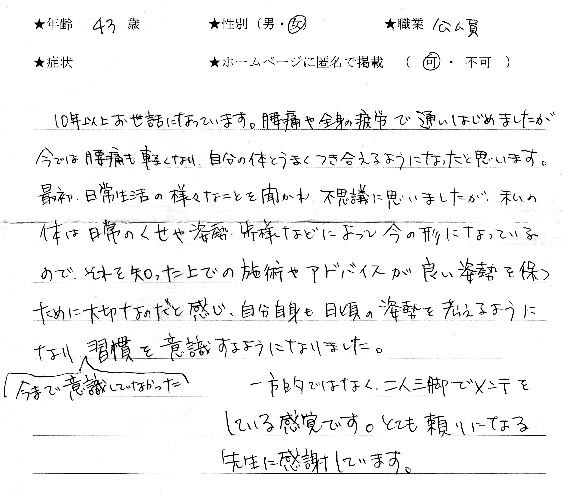 ★年齢 43 歳 ★性別(男・女) ★職業 公ム員
★症状 ★ホームページに匿名で掲載 ( 可 ・ 不可 )
10年以上お世話になっています。腰痛や全身の疲労で通いはじめましたが
今では腰痛も軽くなり、自分の体とうまくつき合えるようになったと思います。
最初、日常生活の様々なことを聞かれ 不思議に思いましたが、私の
体は日常のくせや姿勢、仕様などによって今の形になっている
ので、それを知った上での施術やアドバイスが良い姿勢を保つ
ために大切なのだと感じ、自分自身も日頃の姿勢を考えるように
なり 習慣を意識するようになりました。
今まで意識していなかった
一方的ではなく、二人三脚でメンテを
している感覚です。とても頼りになる
先生に感謝しています。